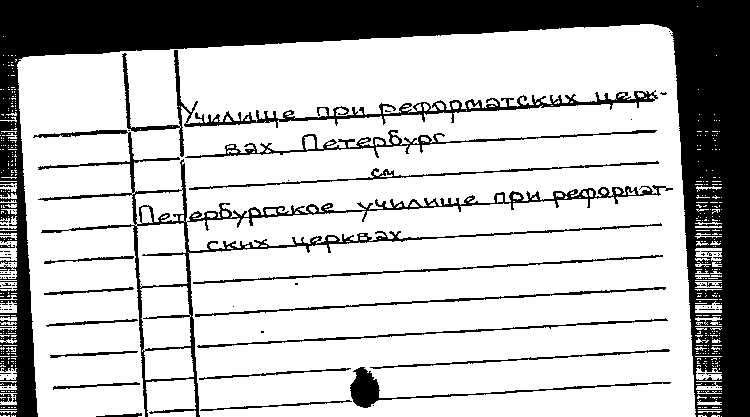 Училище при реформатских церк-
вах. Петербург
см
Петербургское училище при реформат-
ских церквах